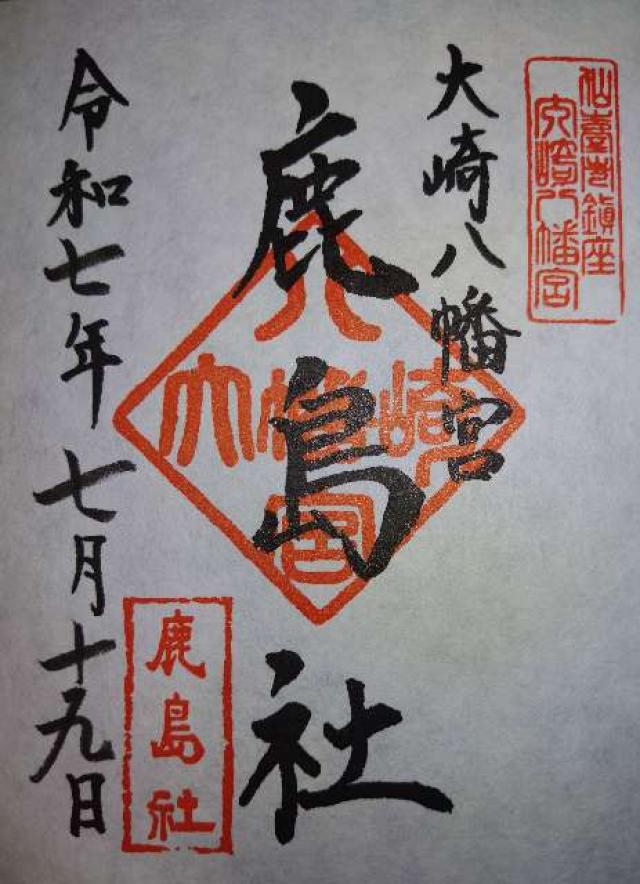 仙臺城鎮座
大崎八幡宮
大崎八幡宮
鹿島社
八
大幡崎
宮
鹿島社
令和七年七月十九日